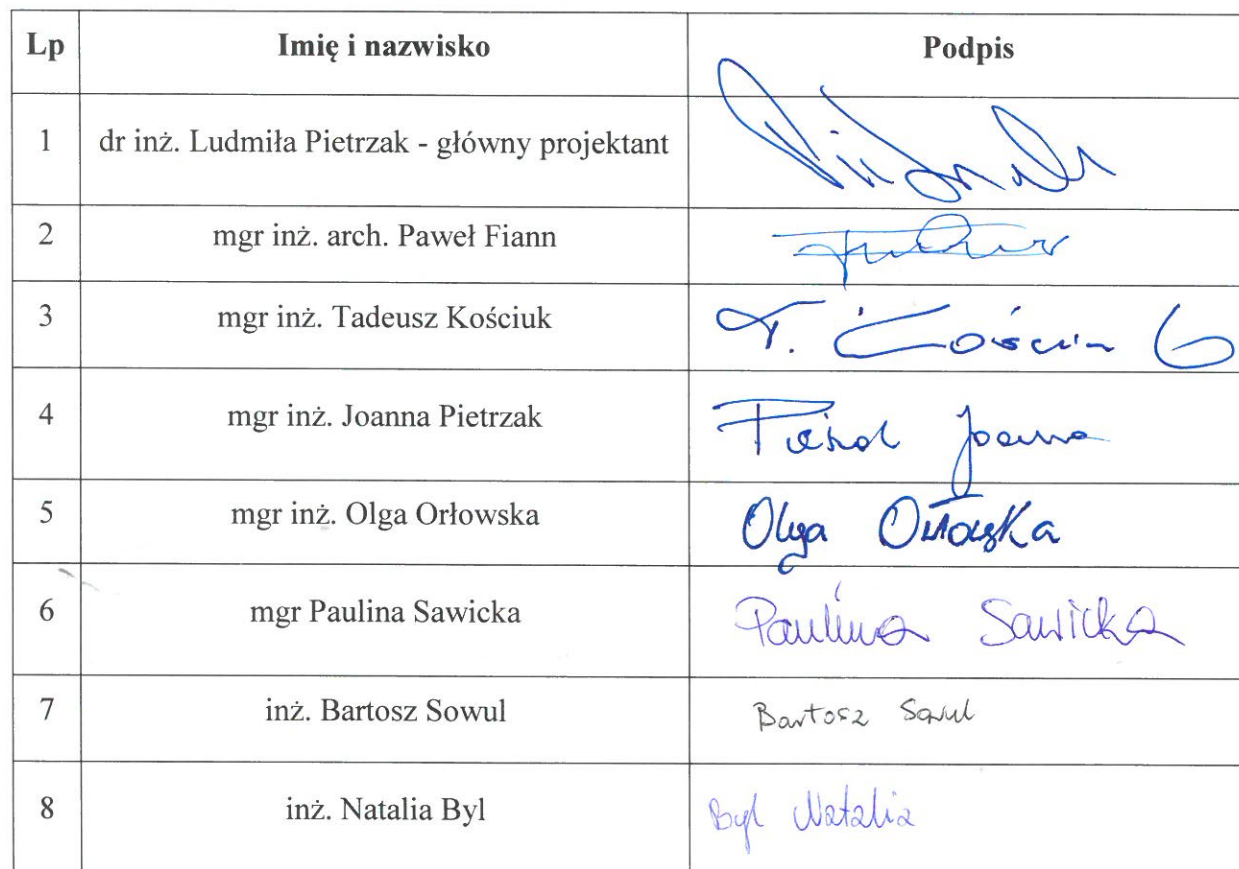 Lp Imię i nazwisko Podpis
1 dr inż. Ludmiła Pietrzak - główny projektant
2 mgr inż. arch. Paweł Fiann
3 mgr inż. Tadeusz Kościuk T.
4 mgr inż. Joanna Pietrzak Joanna
5 mgr inż. Olga Orłowska Olga Orłowska
6 mgr Paulina Sawicka Paulina Sawicka
7 inż. Bartosz Sowul Bartosz Sowul
8 inż. Natalia Byl Byl Natalia